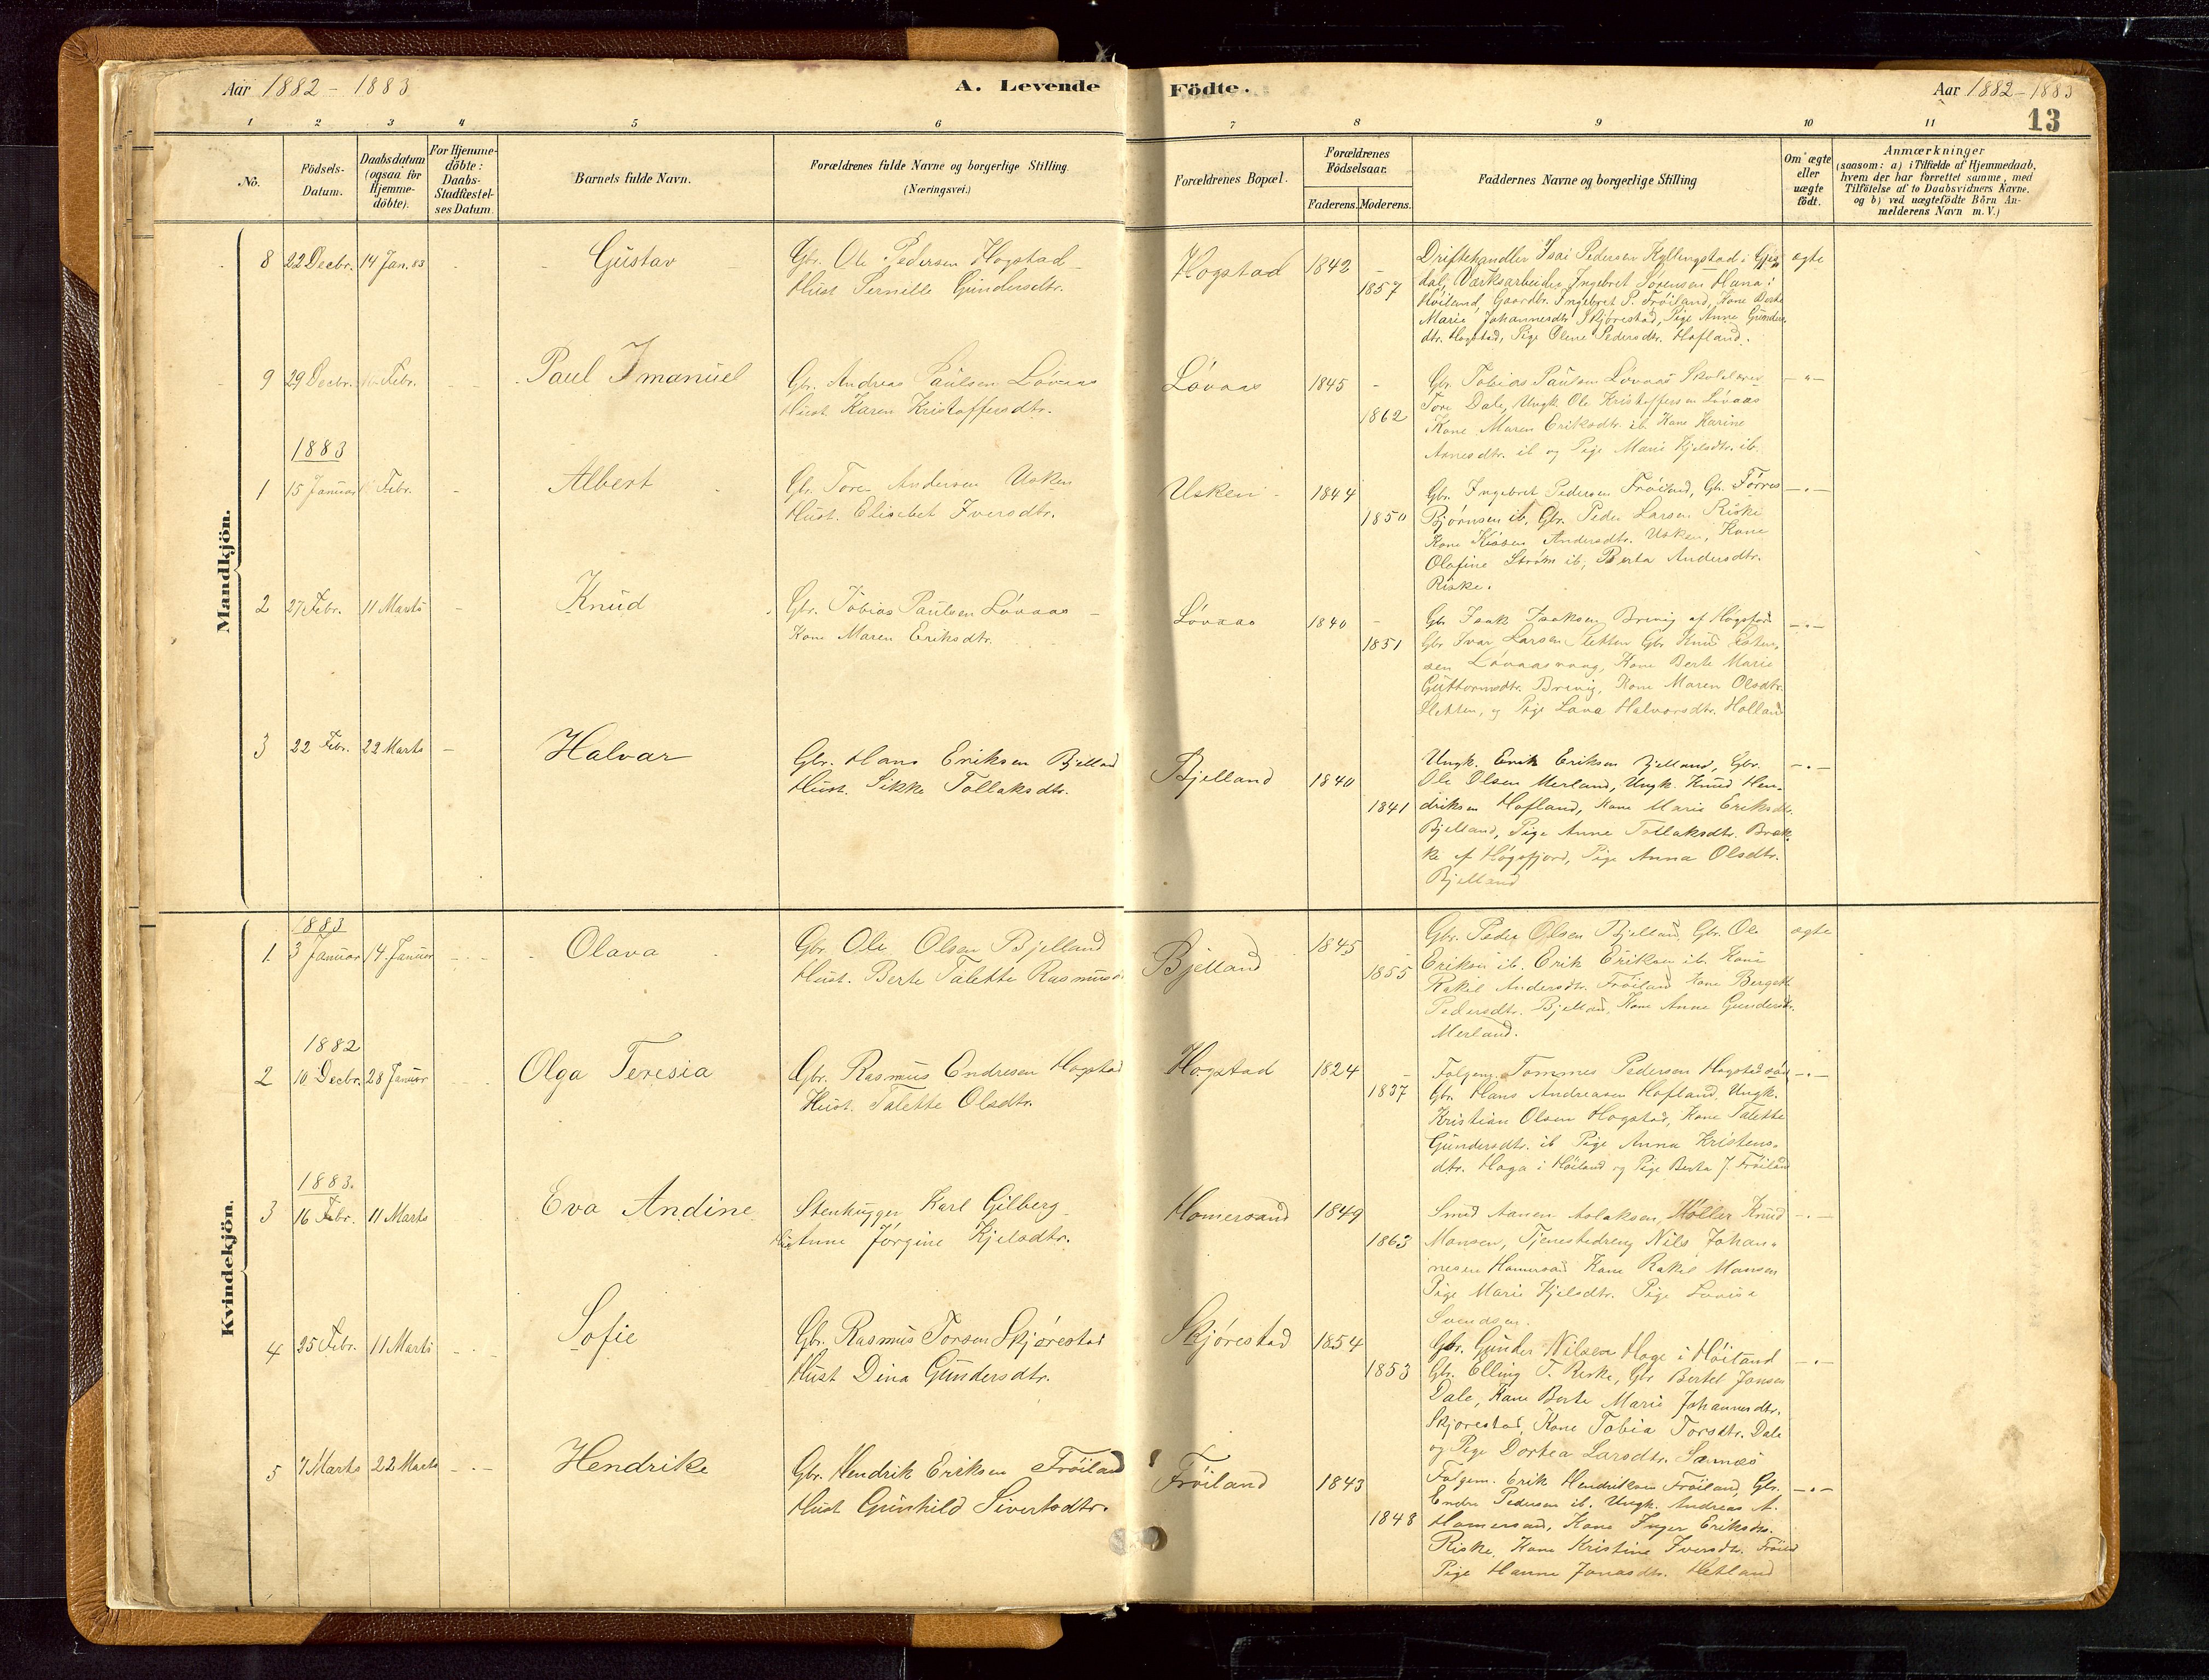 Aar 1882 - 1883
A. Levende
Födte.
Aar 1882-1883
13
1 2 3 4 5 6 7 8 9 10 11
No.
Födsels-
Datum.
Daabsdatum
(ogsaa for
Hjemme-
döbte).
For Hjemme-
döbte:
Daabs-
Stadfæstel-
ses Datum.
Barnets fulde Navn.
Forældrenes fulde Navne og borgerlige Stilling
(Næringsvei.)
Forældrenes Bopæl.
Forældrenes
Födselsaar.
Faderens. Moderens.
Faddernes Navne og borgerlige Stilling
Om ægte
eller
uægte
födt.
Anmærkninger
(saasom: a) i Tilfælde af Hjemmedaab,
hvem der har forrettet samme, med
Tilföielse af to Daabsvidners Navne.
og b) ved uægtefödte Börn An-
melderens Navn m. V.)
Mandkjön.
8 22 Decbr. 14 Jan. 83 Gustav
Gbr. Ole Pedersen Hogstad
Hust Pernille Gundersdtr.
Hogstad 1842
1857
Driftehandler Isai Pedersen Kyllingstad i Gjes
dal, Værksarbeider Ingebret Sørensen Hana i
Høiland, Gaardbr. Ingebret P. Frøiland, Kone Berte
Marie Johannesdtr. Skjørestad, Pige Anne Gunders
dtr. Hogstad, Pige Olene Pedersdtr. Hofland.
ægte
9 29 Decbr. Febr. Paul Imanuel
Gbr. Andreas Paulsen Løvaas
Hust Karen Kristoffersdtr.
Løvaas 1845
1862
Gbr. Tobias Paulsen Løvaas Skolelærer
Tore Dale, Ungk. Ole Kristoffersen Løvaas
Kone Maren Eriksdtr. ib. Kone Karine
Arnesdtr. ib og Pige Marie Kjelsdtr. ib.
- " -
1883
1 15 Januar Febr. Albert
Gbr. Tore Andersen Usken
Hust. Elisebet Iversdtr.
Usken 1844
1850
Gbr. Ingebret Pedersen Frøiland, Gbr. Tørres
Bjørnsen ib, Gbr. Peder Larsen Riske
Kone Andersdtr. Usken, Kone
Olofine Strøm ib, Berta Andersdtr.
Riske.
- " -
2 27 Febr. 11 Marts Knud
Gbr. Tobias Paulsen Løvaas
Kone Maren Eriksdtr.
Løvaas 1840
1851
Gbr Isak Isaksen Brevig af Høgsfjord
Gbr Ivar Larsen Sletten Gbr Knud Osten,
sen Løvaasvaag, Kone Berte Marie
Guttormsdtr. Brevig, Kone Maren Olsdtr.
Sletten, og Pige Lava Halvorsdtr. Holland
- " -
3 22 Febr. 22 Marts Halvar
Gbr. Hans Eriksen Bjelland
Hust. Sikke Tollaksdtr.
Bjelland 1840
1841
Ungk. Erik Eriksen Bjelland, Gbr.
Ole Olsen Merland, Ungk. Knud Hen-
driksen Hofland, Kone Marie Eriksdtr.
Bjelland, Pige Anne Tollaksdtr. Bræk
ke af Høgsfjord, Pige Anna Olsdtr.
Bjelland
- " -
Kvindekjön.
1883
1. 3 Januar 14. Januar Olava
Gbr. Ole Olsen Bjelland
Hust. Berte Talette Rasmusd
Bjelland 1845
1855
Gbr. Peder Olsen Bjelland, Gbr. Ole
Eriksen ib. Erik Eriksen ib. Kone
Rakel Andersdtr. Frøiland Kone Bergette
Pedersdtr. Bjelland, Kone Anne Gundersdtr.
Merland.
ægte
1882
2 10 Decbr. 28 Januar Olga Teresia
Gbr. Rasmus Endresen Hogstad
Hust. Talette Olsdtr.
Hogstad 1824
1837
Folgem. Tommes Pedersen Hogstad
Gbr. Hans Andreasen Hofland, Ungk.
Kristian Olsen Hogstad, Kone Talette
Gundersdtr. ib Pige Anna Kristens-
dtr. Haga i Høiland og Pige Berta J. Frøiland
- " -
1883.
3 16 Febr. 11 Marts Eva Andine
Stenhugger Karl Gilberg
Anne Jørgine Kjelsdtr.
Homersand 1849
1863
Smed Aanen Aslaksen, Møller Knud
Mansen, Tjenestedreng Nils Johan-
nesen Homersand Kone Rakel Mansen
Pige Marie Kjelsdtr. Pige Lovise
Svendsen.
- " -
4 25 Febr. 11 Marts Sofie
Gbr. Rasmus Torsen Skjørestad
Hust Dina Gundersdtr.
Skjørestad 1854
1853
Gbr. Gunder Nilsen Hoge i Høiland
Gbr. Elling T. Riske, Gbr Bertel Jansen
Dale, Kone Berte Marie Johannesdtr.
Skjørestad, Kone Tobia Torsdtr. Dale
og Pige Dortea Larsdtr. Somnes
- " -
5 7 Marts 22 Marts Hendrike
Gbr. Hendrik Eriksen Frøiland
Hust Gunhild Sivertsdtr.
Frøiland 1843
1848
Folgem. Erik Hendriksen Frøiland, Gbr.
Endre Pedersen ib. Ungk. Andreas A.
Homersand, Kone Inger Eriksdtr.
Riske, Kone Kristine Iversdtr. Frøiland
Pige Hanne Jonasdtr. Hetland
- " -